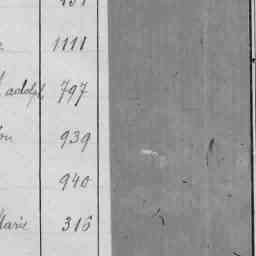 1111
adolph 797
939
940
Marie 316